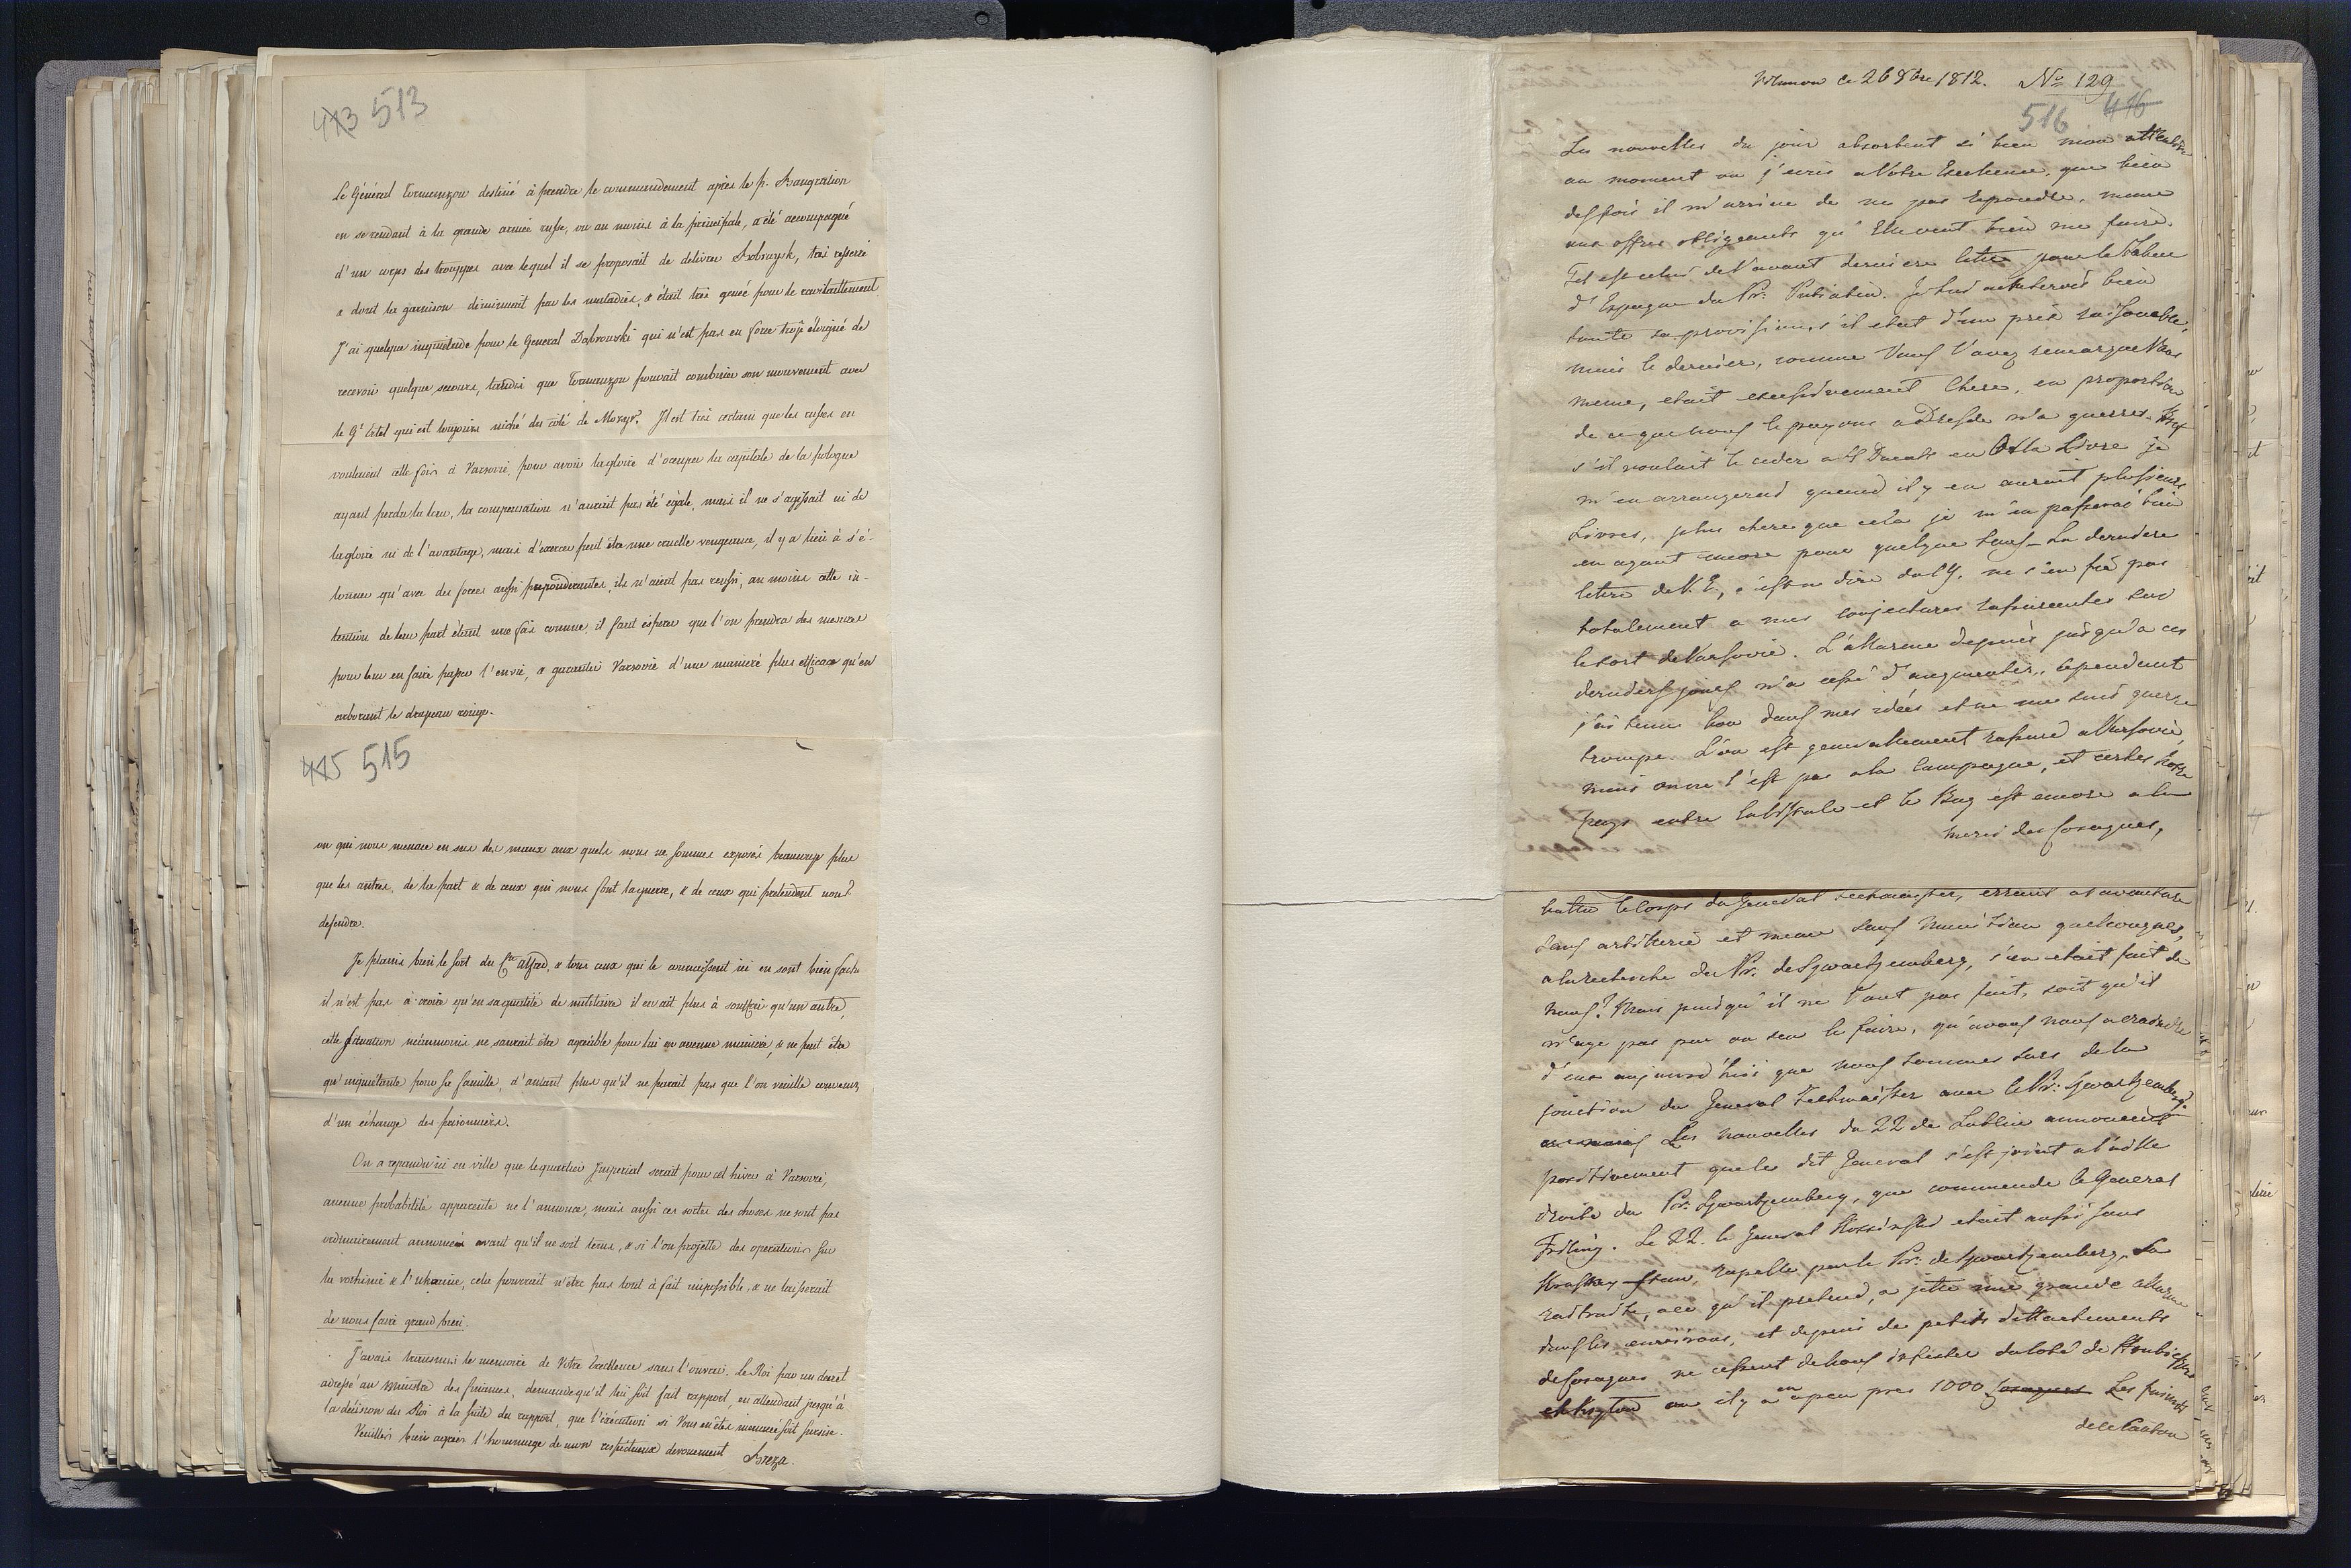 413 513
Le Général Tormanzow destiné à prendre le commandement après le p. Bangration
en se rendant à la grande armée russe, ou au moins à la principale, a été accompagné
d'un corps des trouppes avec lequel il se proposait de delivrer Bobruysk, très resserré
& dont la garnison diminuait par les maladies, & était très genée pour le ravitaillement.
J'ai quelque inquietude pour le General Dąbrowski qui n'est pas en force trop éloigné de
recevoir quelque secours, tandis que Tormanzow pouvait combiner son mouvement avec
le Gl Ertel qui est toujours niché du côté de Mozyr. Il est très certain que les russes en
voulaient cette fois à Varsovie, pour avoir la gloire d'occuper la capitale de la pologne
ayant perdu la leur, la compensation n'aurait pas été égale, mais il ne s'agissait ni de
la gloire ni de l'avantage, mais d'exercer peut être une cruelle vengeance, il y a lieu à s'é-
tonner qu'avec des forces aussi preponderantes, ils n'aient pas reussi, au moins cette in-
tention de leur part étant une fois connue, il faut espérer que l'on prendra des mesures
pour leur en faire passer l'envie, & garantir Varsovie d'une manière plus efficace qu'en
arborant le drapeau rouge.
415 515
on qui nous menace en sus des maux aux quels nous ne sommes exposés beaucoup plus
que les autres, de la part & de ceux qui nous font la guerre, & de ceux qui pretendent nous
defendre.
Je plains bien le sort du Cte Alfred, & tous ceux qui le connaissent ici en sont bien fachés
il n'est pas à croire qu'en sa qualité de militaire il en ait plus à souffrir qu'un autre,
cette situation néanmoins ne saurait être agréable pour lui en aucune manière, & ne peut être
qu'inquiétante pour sa famille, d'autant plus qu'il ne parait pas que l'on veuille convenir
d'un échange des prisonniers.
On a repandu ici en ville que le quartier Imperial serait pour cet hiver à Varsovie,
aucune probabilité apparente ne l'annonce, mais aussi ces sortes des choses ne sont pas
ordinairement annoncées avant qu'il ne soit tems, & si l'on projette des operations sur
la volhinie & l'ukraine, cela pourrait n'être pas tout à fait impossible, & ne laisserait
de nous faire grand bien.
J'avais transmis le memoire de Votre Excellence sans l'ouvrir. Le Roi par un decret
adressé au Ministre des finances, demande qu'il lui soit fait rapport, en attendant jusqu'à
la décision du Roi à la suite du rapport, que l'exécution si Vous en êtes menacé soit sursise.
Veuillés bien agréer l'hommage de mon respectueux devouement Breza
ce 26 8bre 1812. No 129
516 416
Les nouvelles du jour absorbent si bien mon attention
au moment ou j'ecris a Votre Excelence, que bien
des fois il m'arrive de ne pas repondre, meme
aux offres obligeants qu'Elle veut bien me faire.
Tel est celui de l'avant derniere lettre pour le Tabac
d'Espagne du Pr: Putiatin. Je lui acheterois bien
toute sa provision, s'il etait d'un prix raisonable,
mais le dernier, comme Vous l'avez remarqué Vous
meme, etait excessivement chere, en proportion
de ce que nous le payons a Dresde n'a gueres. Bref
s'il voulait le ceder a Ducats en Or la Livre je
m'en arrangerais quand il y en aurait plusieurs
Livres, plus chere que cela je m'en passerai bien
en ayant encore pour quelque tems. La derniere
lettre de V. E., c'est a dire du 19, ne s'en fie pas
totalement a mes conjectures rassurantes sur
le sort de Varsovie. L'allarme depuis jusqu'a ces
derniers jours n'a cessé d'augmenter, cependant
j'ai tenu bon dans mes idées et ne me suis guere
trompé. L'on est generalement rassuré a Varsovie,
mais on ne l'est pas a la Campagne, et certes notre
pays entre la Vistule et le Bug est encore a la
merci des Cosaques,
battre le Corps du General errant a l'avanture
sans artillerie et meme sans munition quelconques,
a la recherche du Pr: de Szwartzemberg, s'en etait fait de
nous? Mais puisqu'il ne l'ont pas fait, soit qu'il
n'aye pas pu ou seu le faire, qu'avons nous a craindre
d'eux aujourd'hui que nous sommes surs de la
jonction du General avec le Pr: Szwartzemberg.
Les nouvelles du 22 de Lublin annoncent
positivement que le dit General s'est joint a l'aile
droite du Pr: Szwartzemberg, que commende le General
Friling. Le 22. le General Kossinski etait aussi sans
Krasny Staw, rapellé par le Pr: de Szwartzemberg. Sa
retraite, a ce qu'il pretend, a jetté une grande allarme
dans les environs, et depuis de petits dettachements
de Cosaques ne cessent de nous infester du coté de Hrubieszow
ou il y a en a peu pres 1000 Les
de ce Canton